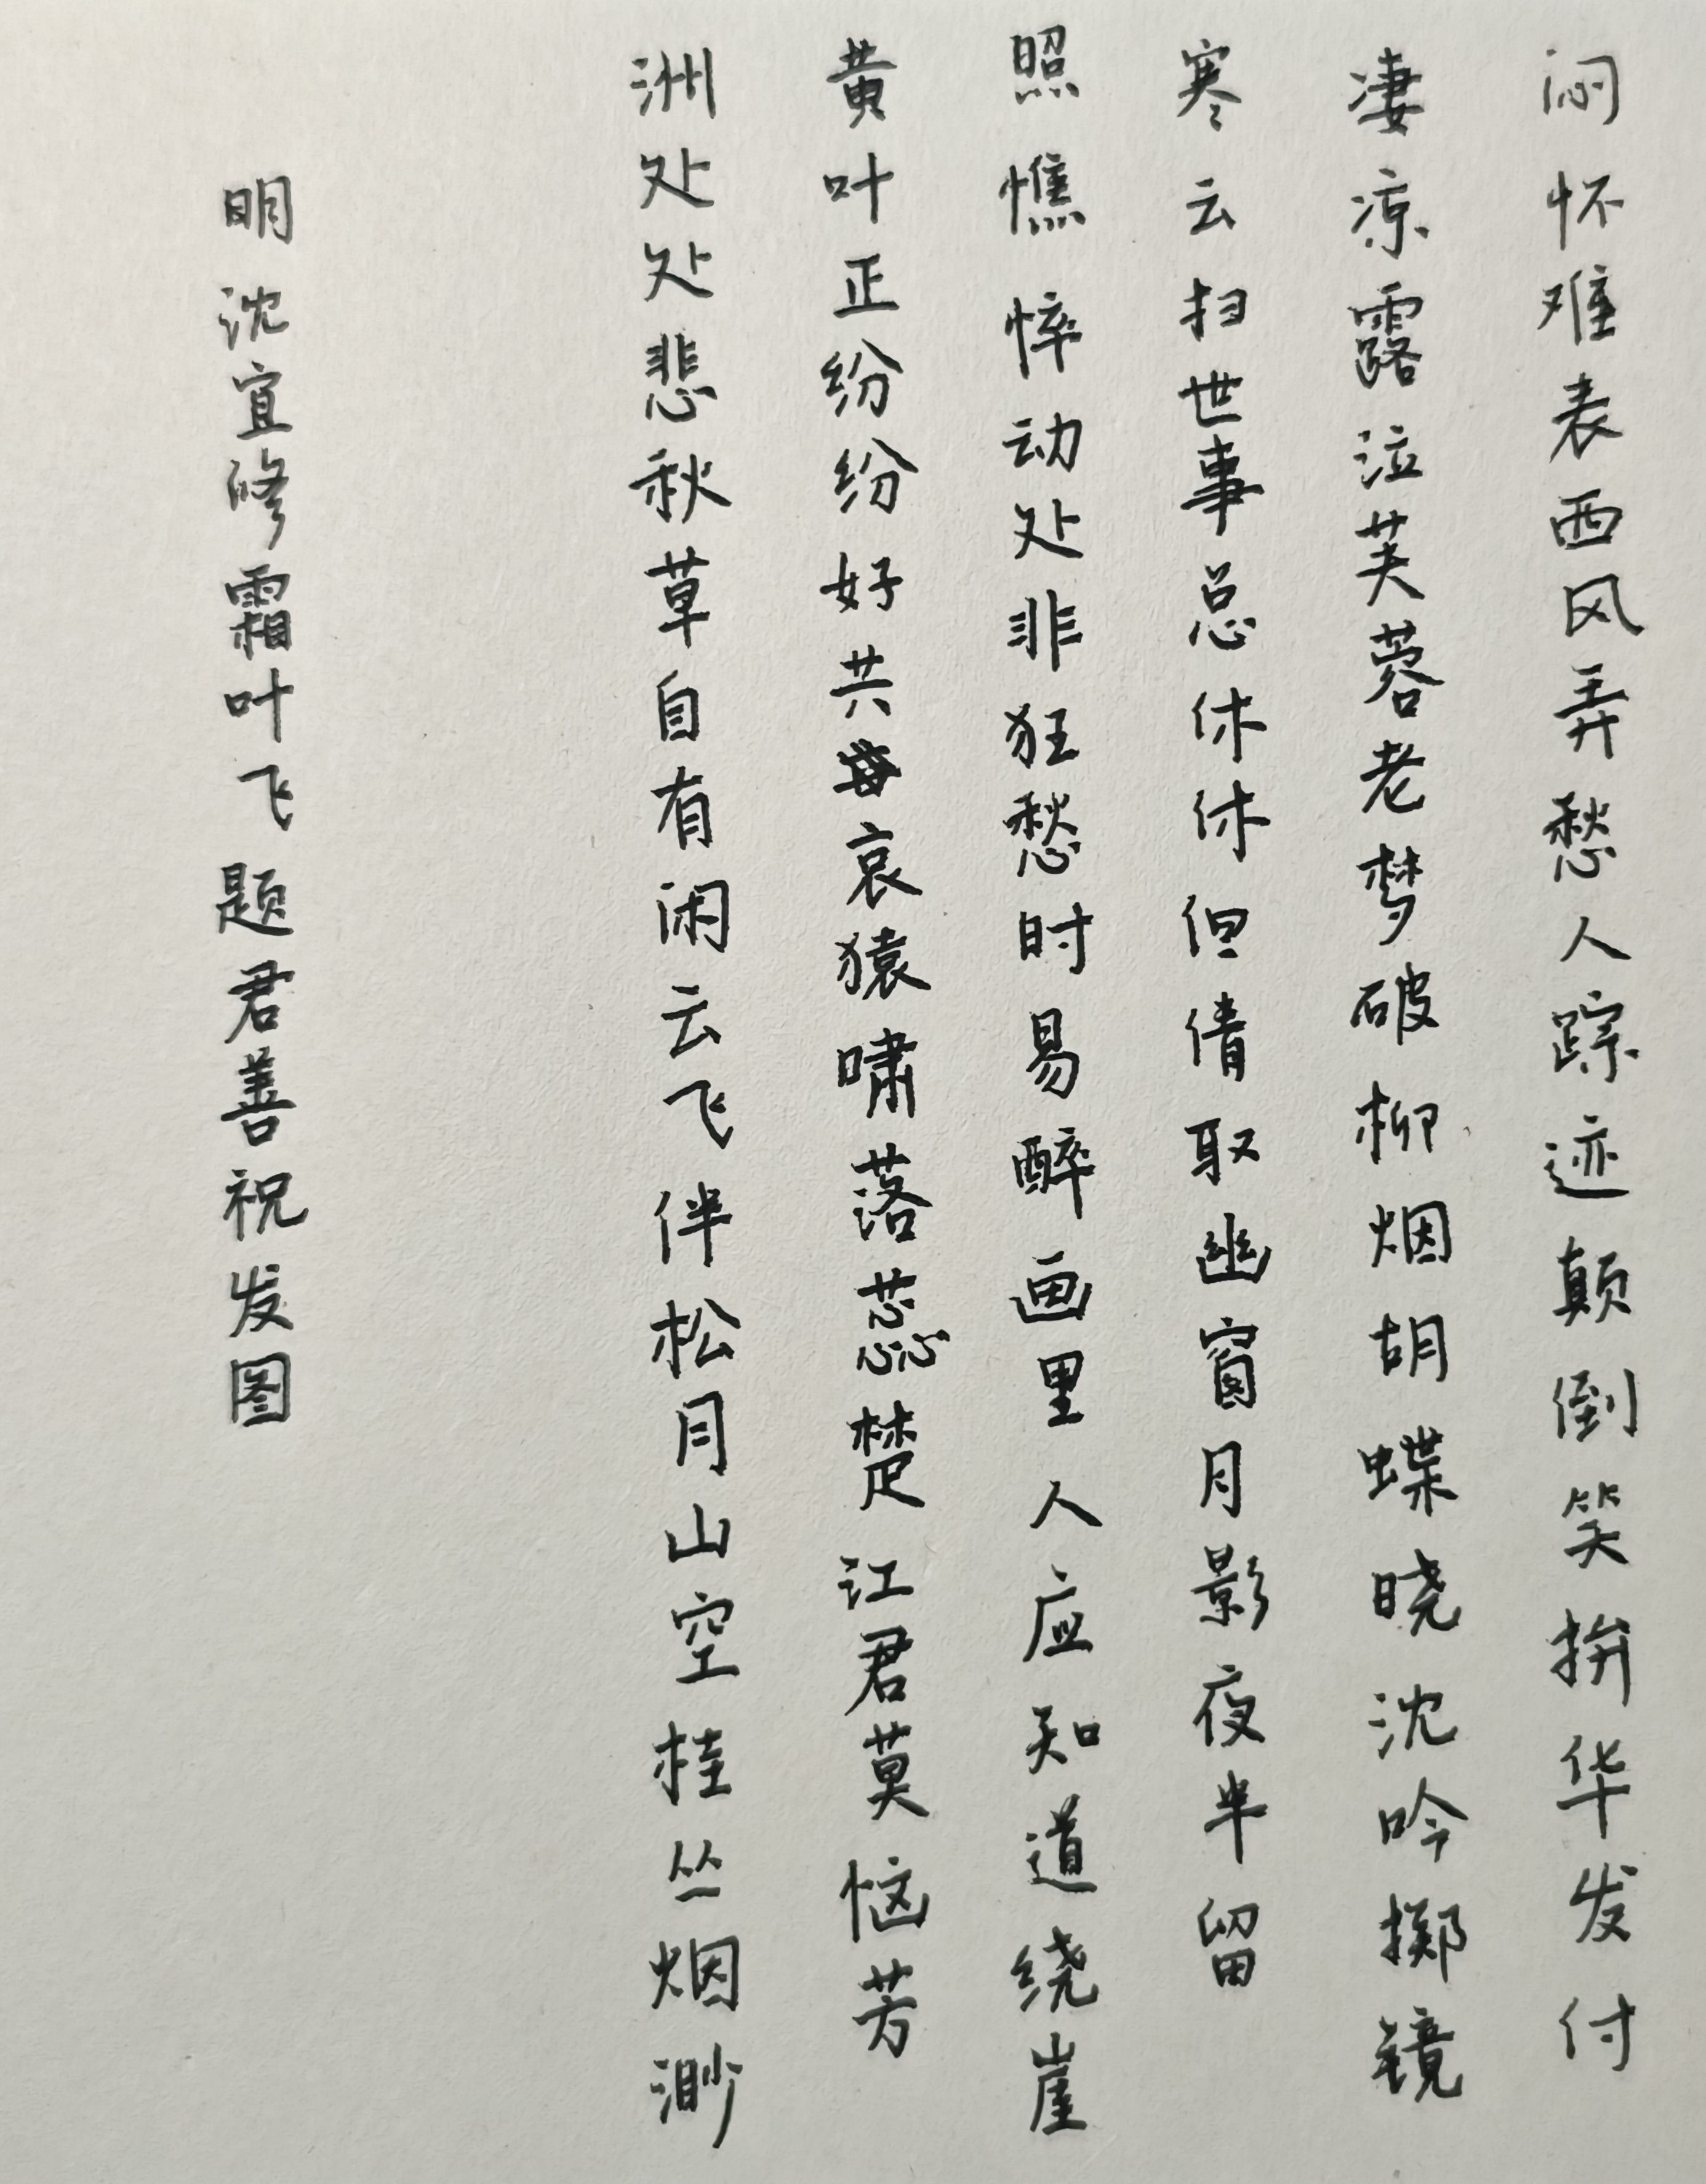 闷怀难表西风弄愁人踪迹颠倒笑拚华发付
凄凉露泣芙蓉老梦破柳烟胡蝶晓沈吟掷镜
寒云扫世事总休休但倩取幽窗月影夜半留
照憔悴动处非狂愁时易醉画里人应知道绕崖
黄叶正纷纷好共哀猿啸落蕊楚江君莫恼芳
洲处处悲秋草自有闲云飞伴松月山空桂丛烟渺
明沈宜修霜叶飞题君善祝发图